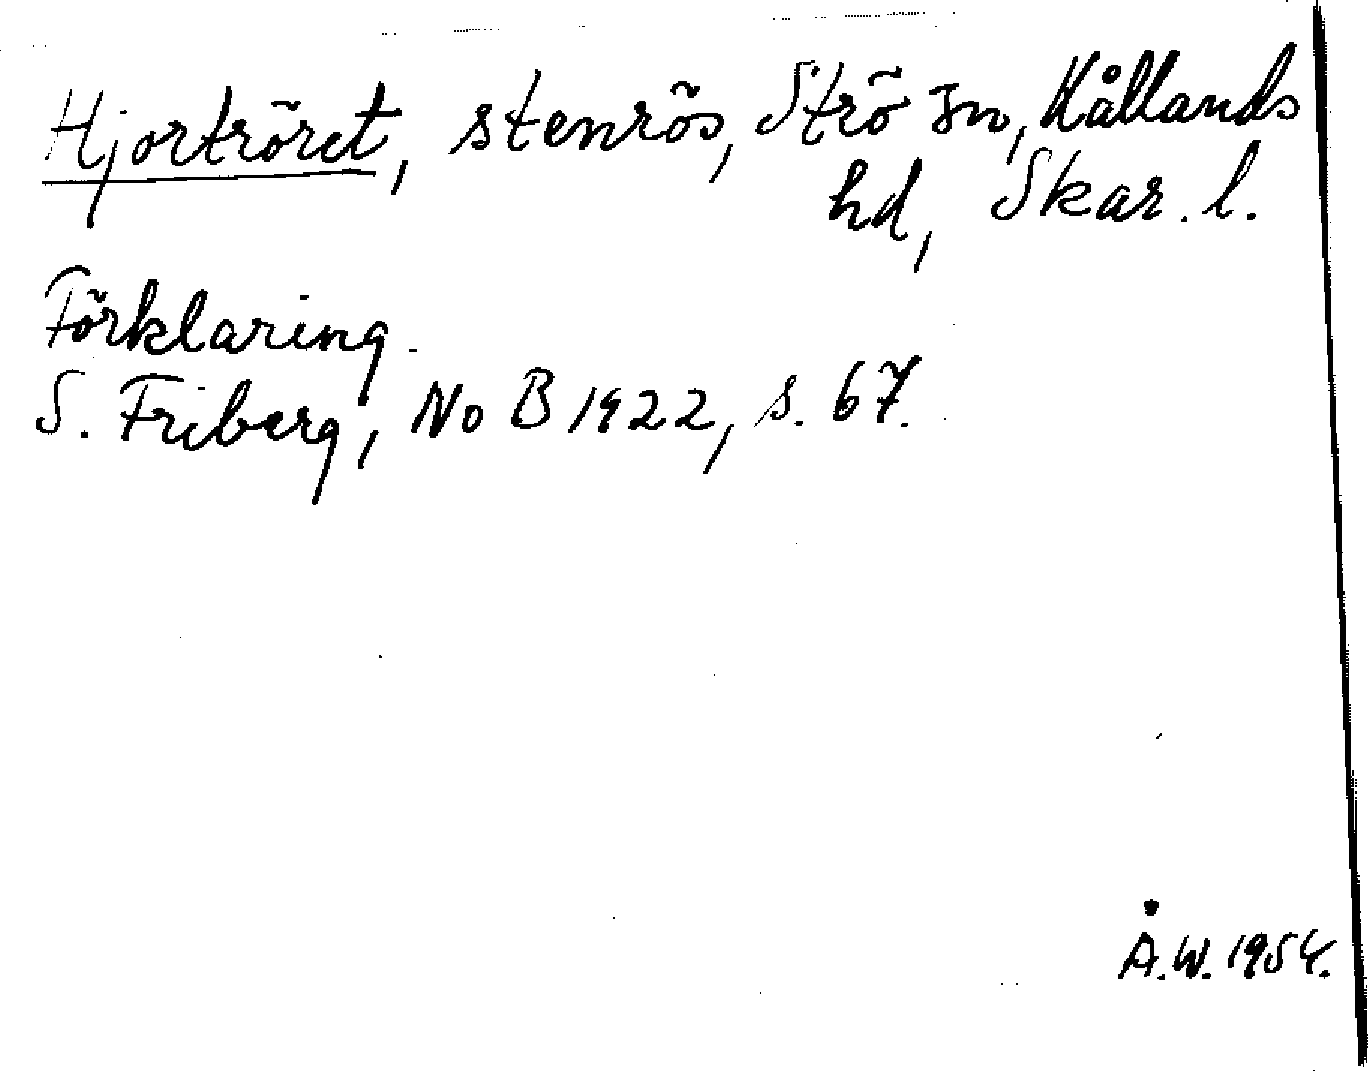 Hjortröret, stenrös, Strö sn, Kållands
hd, Skar. l.
Förklaring.
S. Friberg, NoB 1922, s. 67.
Å.W. 1954.